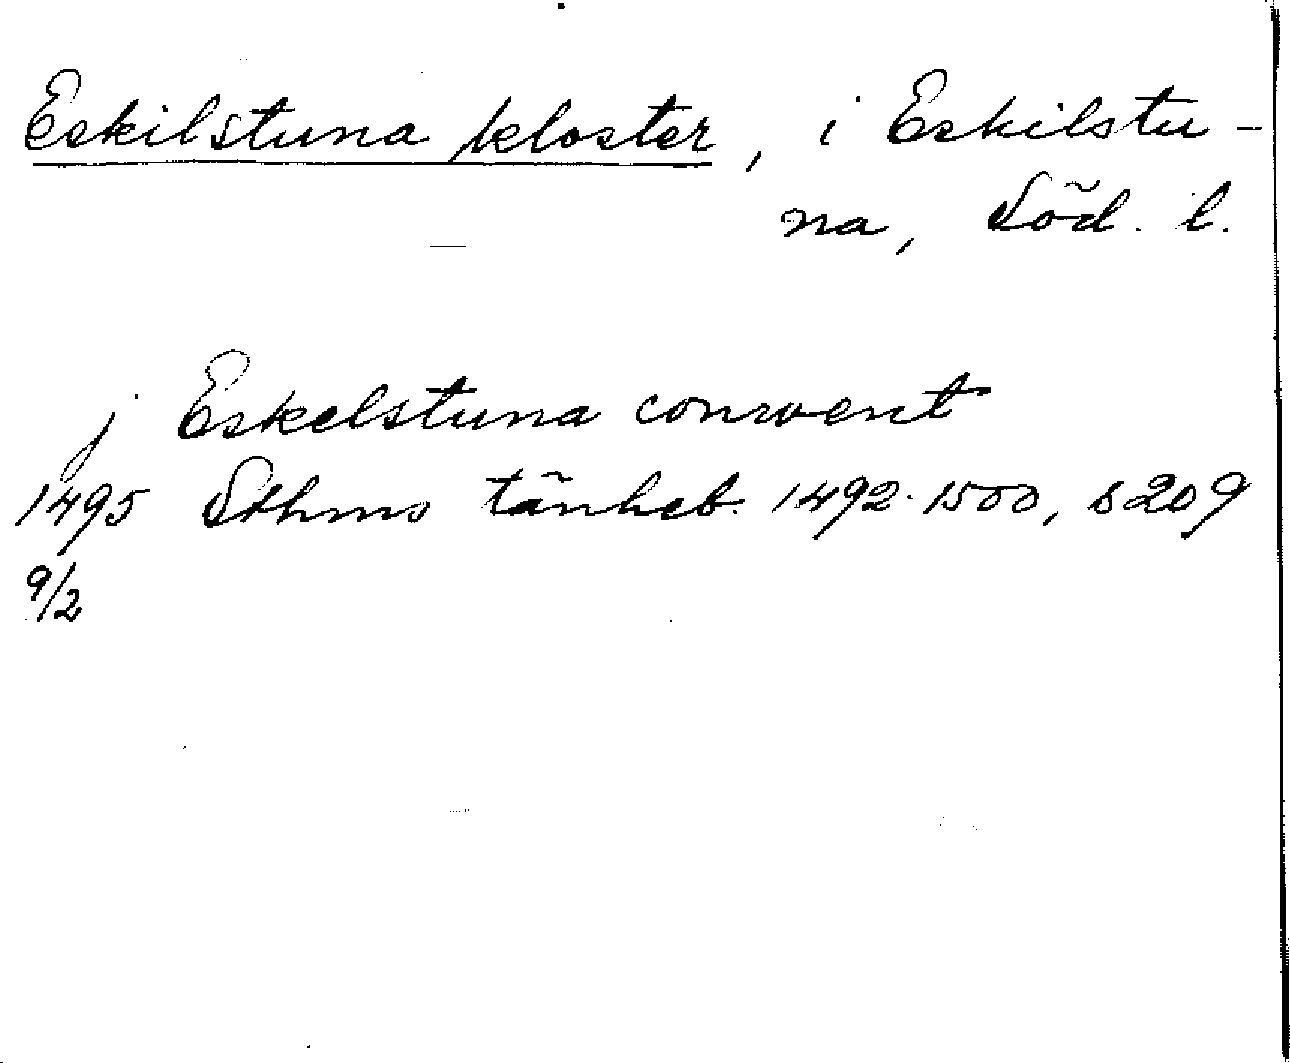 Eskilstuna kloster, i Eskilstu-
na, Söd. l.
j Eskelstuna conwent
1495 Sthms tänkeb. 1492-1500, s 209
9/2